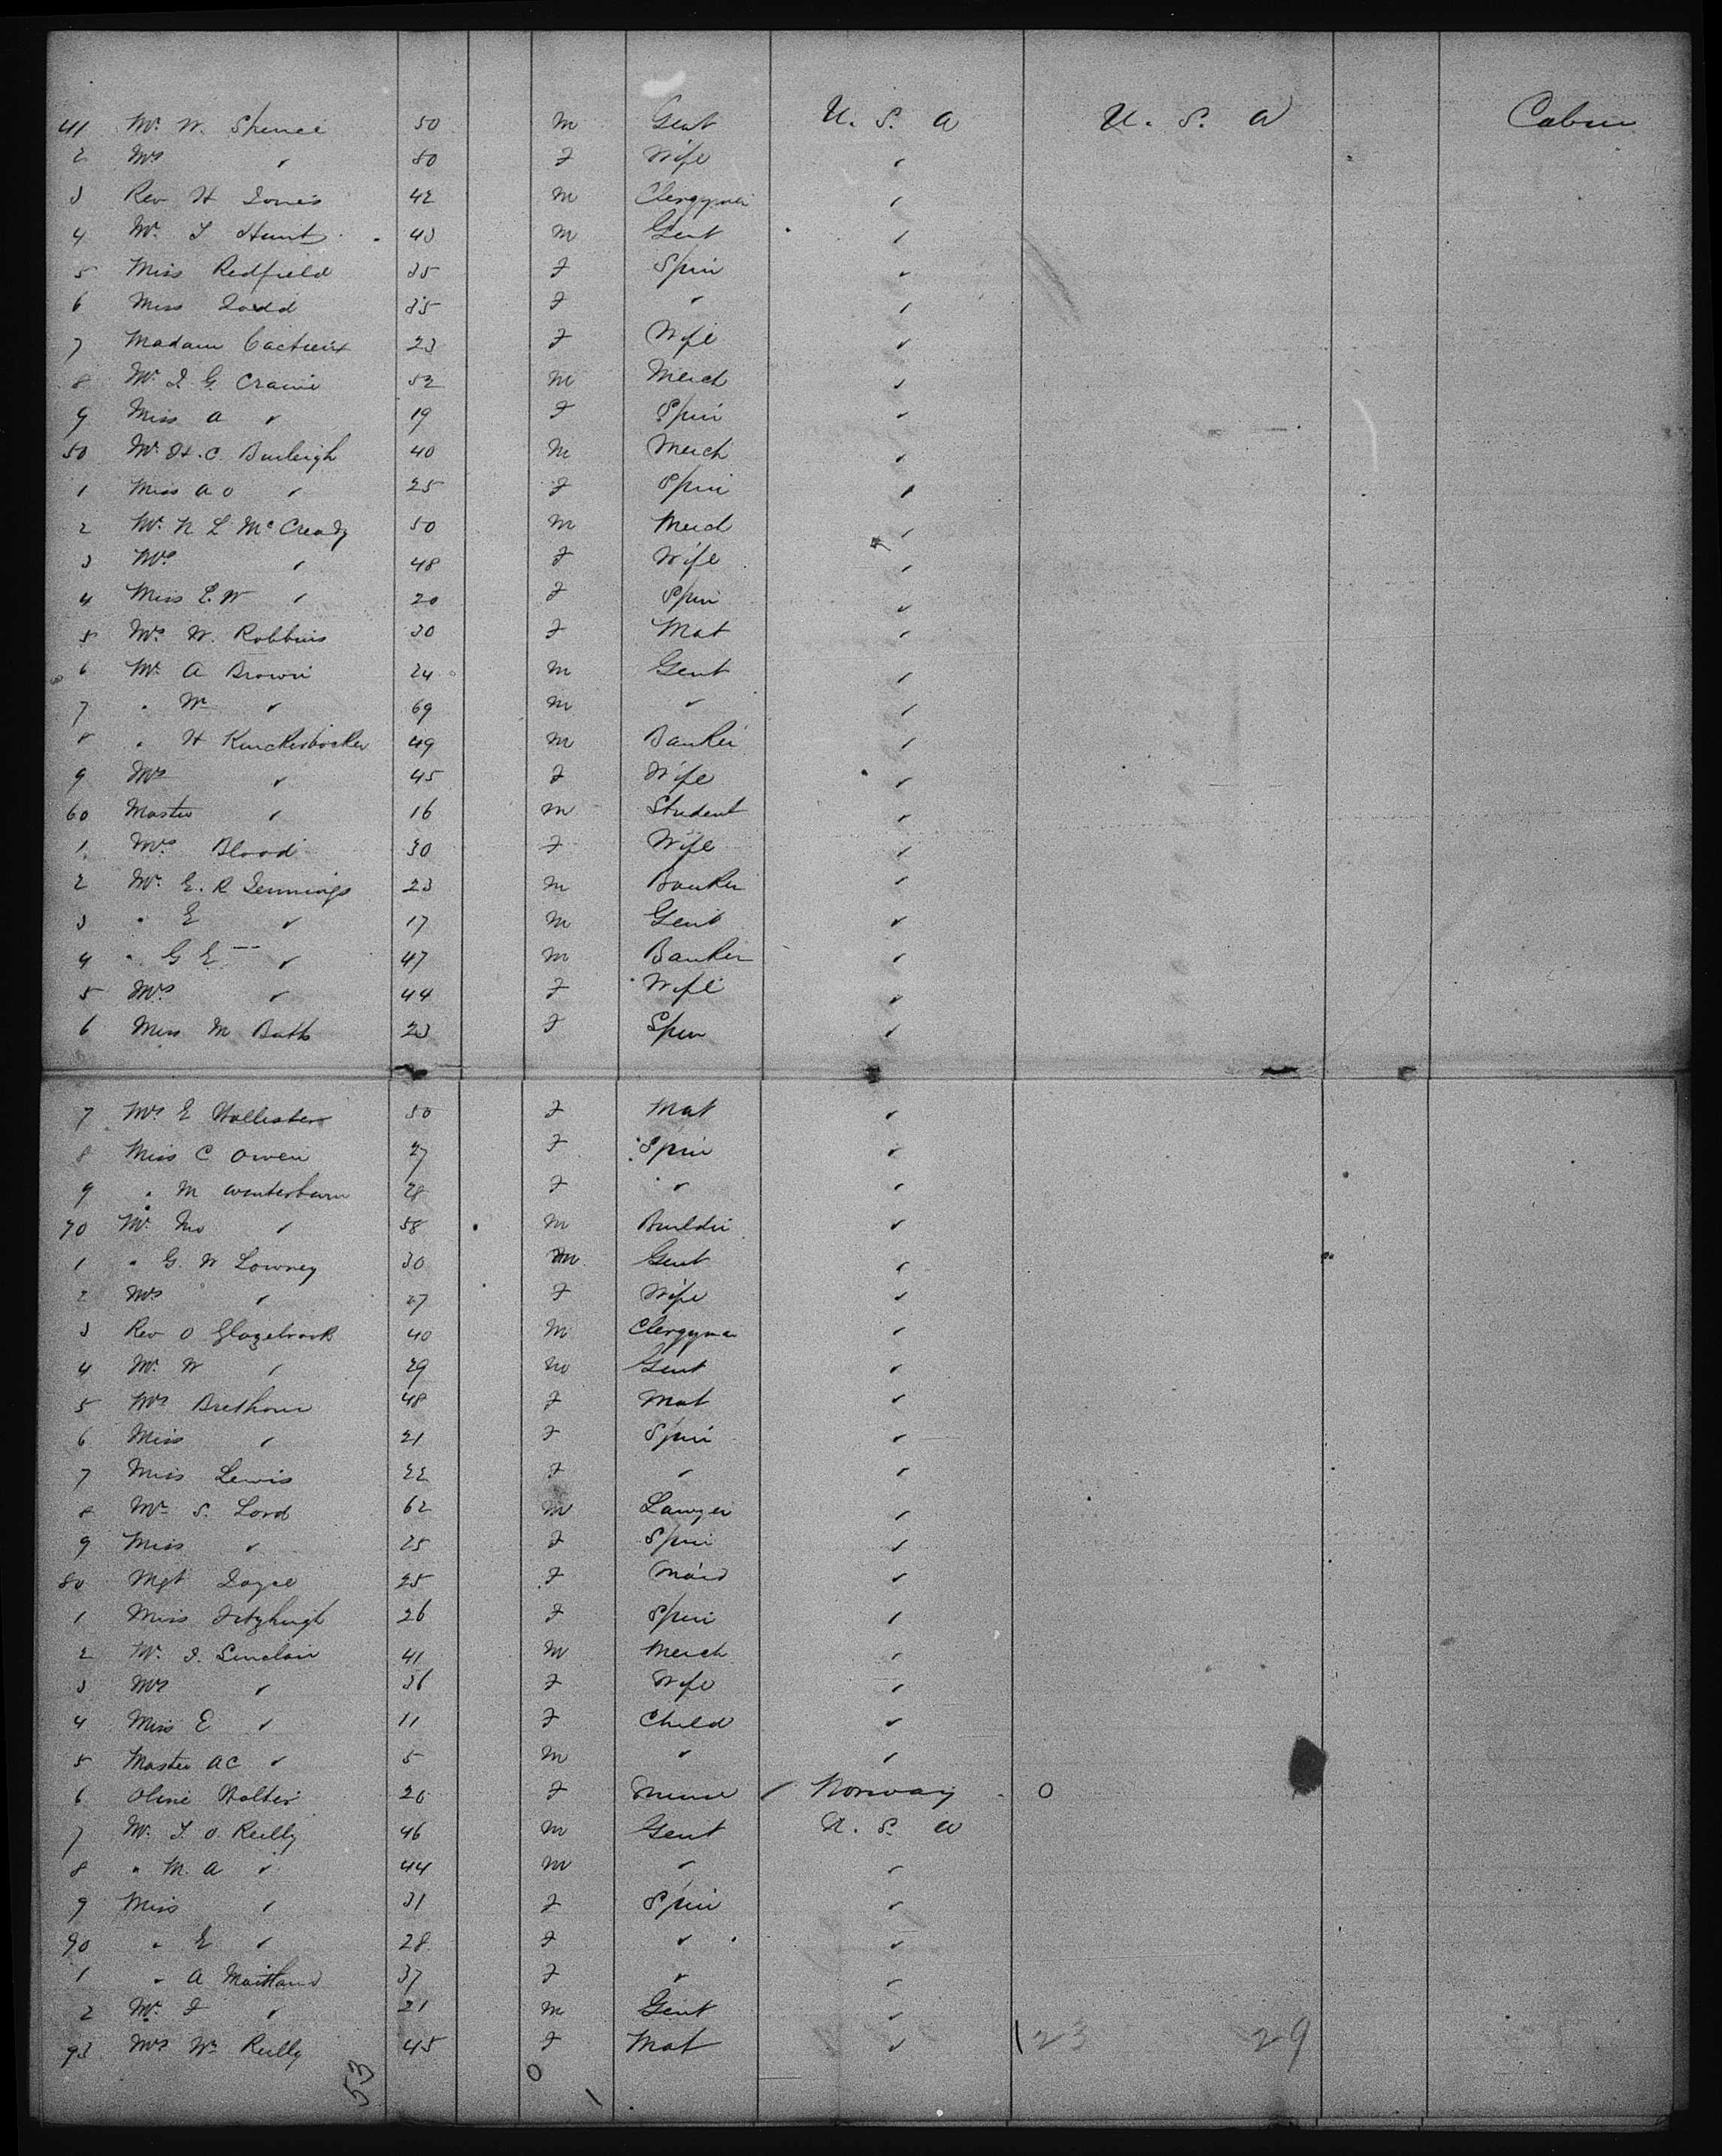 41 Mr. W. Spence 50 M Gent U. S. A U. S. A Cabin
2 Mrs " 50 F Wife "
3 Rev H Jones 42 M Clergyman "
4 Mr. T Hunt 43 M Gent "
5 Miss Redfield 35 F Spin "
6 Miss Todd 35 F " "
7 Madam 23 F Wife "
8 Mr. J. G. Crane 52 M Merch "
9 Miss A " 19 F Spin "
50 Mr. H. C. Burleigh 40 M Merch "
1 Miss A O " 25 F Spin "
2 Mr. N L McCready 50 M Merch "
3 Mrs " 48 F Wife "
4 Miss E. W " 20 F Spin "
5 Mrs. W. Robbins 30 F Mat "
6 Mr. A Brown 24 M Gent "
7 " Wm " 69 M " "
8 " H Knickerbocker 49 M Banker "
9 Mrs " 45 F Wife "
60 Master " 16 M Student "
1 Mrs Blood 30 F Wife "
2 Mr. E. R Jennings 23 M Banker "
3 " E " 17 M Gent "
4 " G E " 47 M Banker "
5 Mrs " 44 F Wife "
6 Miss M Bath 23 F Spin "
7 Mrs E Hollister 50 F Mat "
8 Miss C Owen 27 F Spin "
9 " M Winterburn 28 F " "
70 Mr. Jno " 58 M Builder "
1 " G. W Lowrey 30 M Gent "
2 Mrs " 27 F Wife "
3 Rev O Glazebrook 40 M Clergyman "
4 Mr. W " 29 M Gent "
5 Mrs Brethour 48 F Mat "
6 Miss " 21 F Spin "
7 Miss Lewis 22 F " "
8 Mr S. Lord 62 M Lawyer "
9 Miss " 25 F Spin "
80 Mgt Joyce 25 F Maid "
1 Miss Fitzhugh 26 F Spin "
2 Mr. J. Sinclair 41 M Merch "
3 Mrs " 36 F Wife "
4 Miss E " 11 F Child "
5 Master A C " 5 M " "
6 Oline Halter 20 F Nurse / Norway 0
7 Mr. T. O Reilly 46 M Gent U. S. A
8 " M. A " 44 M " "
9 Miss " 31 F Spin "
90 " E " 28 F " "
1 " A Maitland 37 F " "
2 Mr. J " 21 M Gent "
93 Mrs Wm Reilly 45 F Mat " 123 29
53 0 1